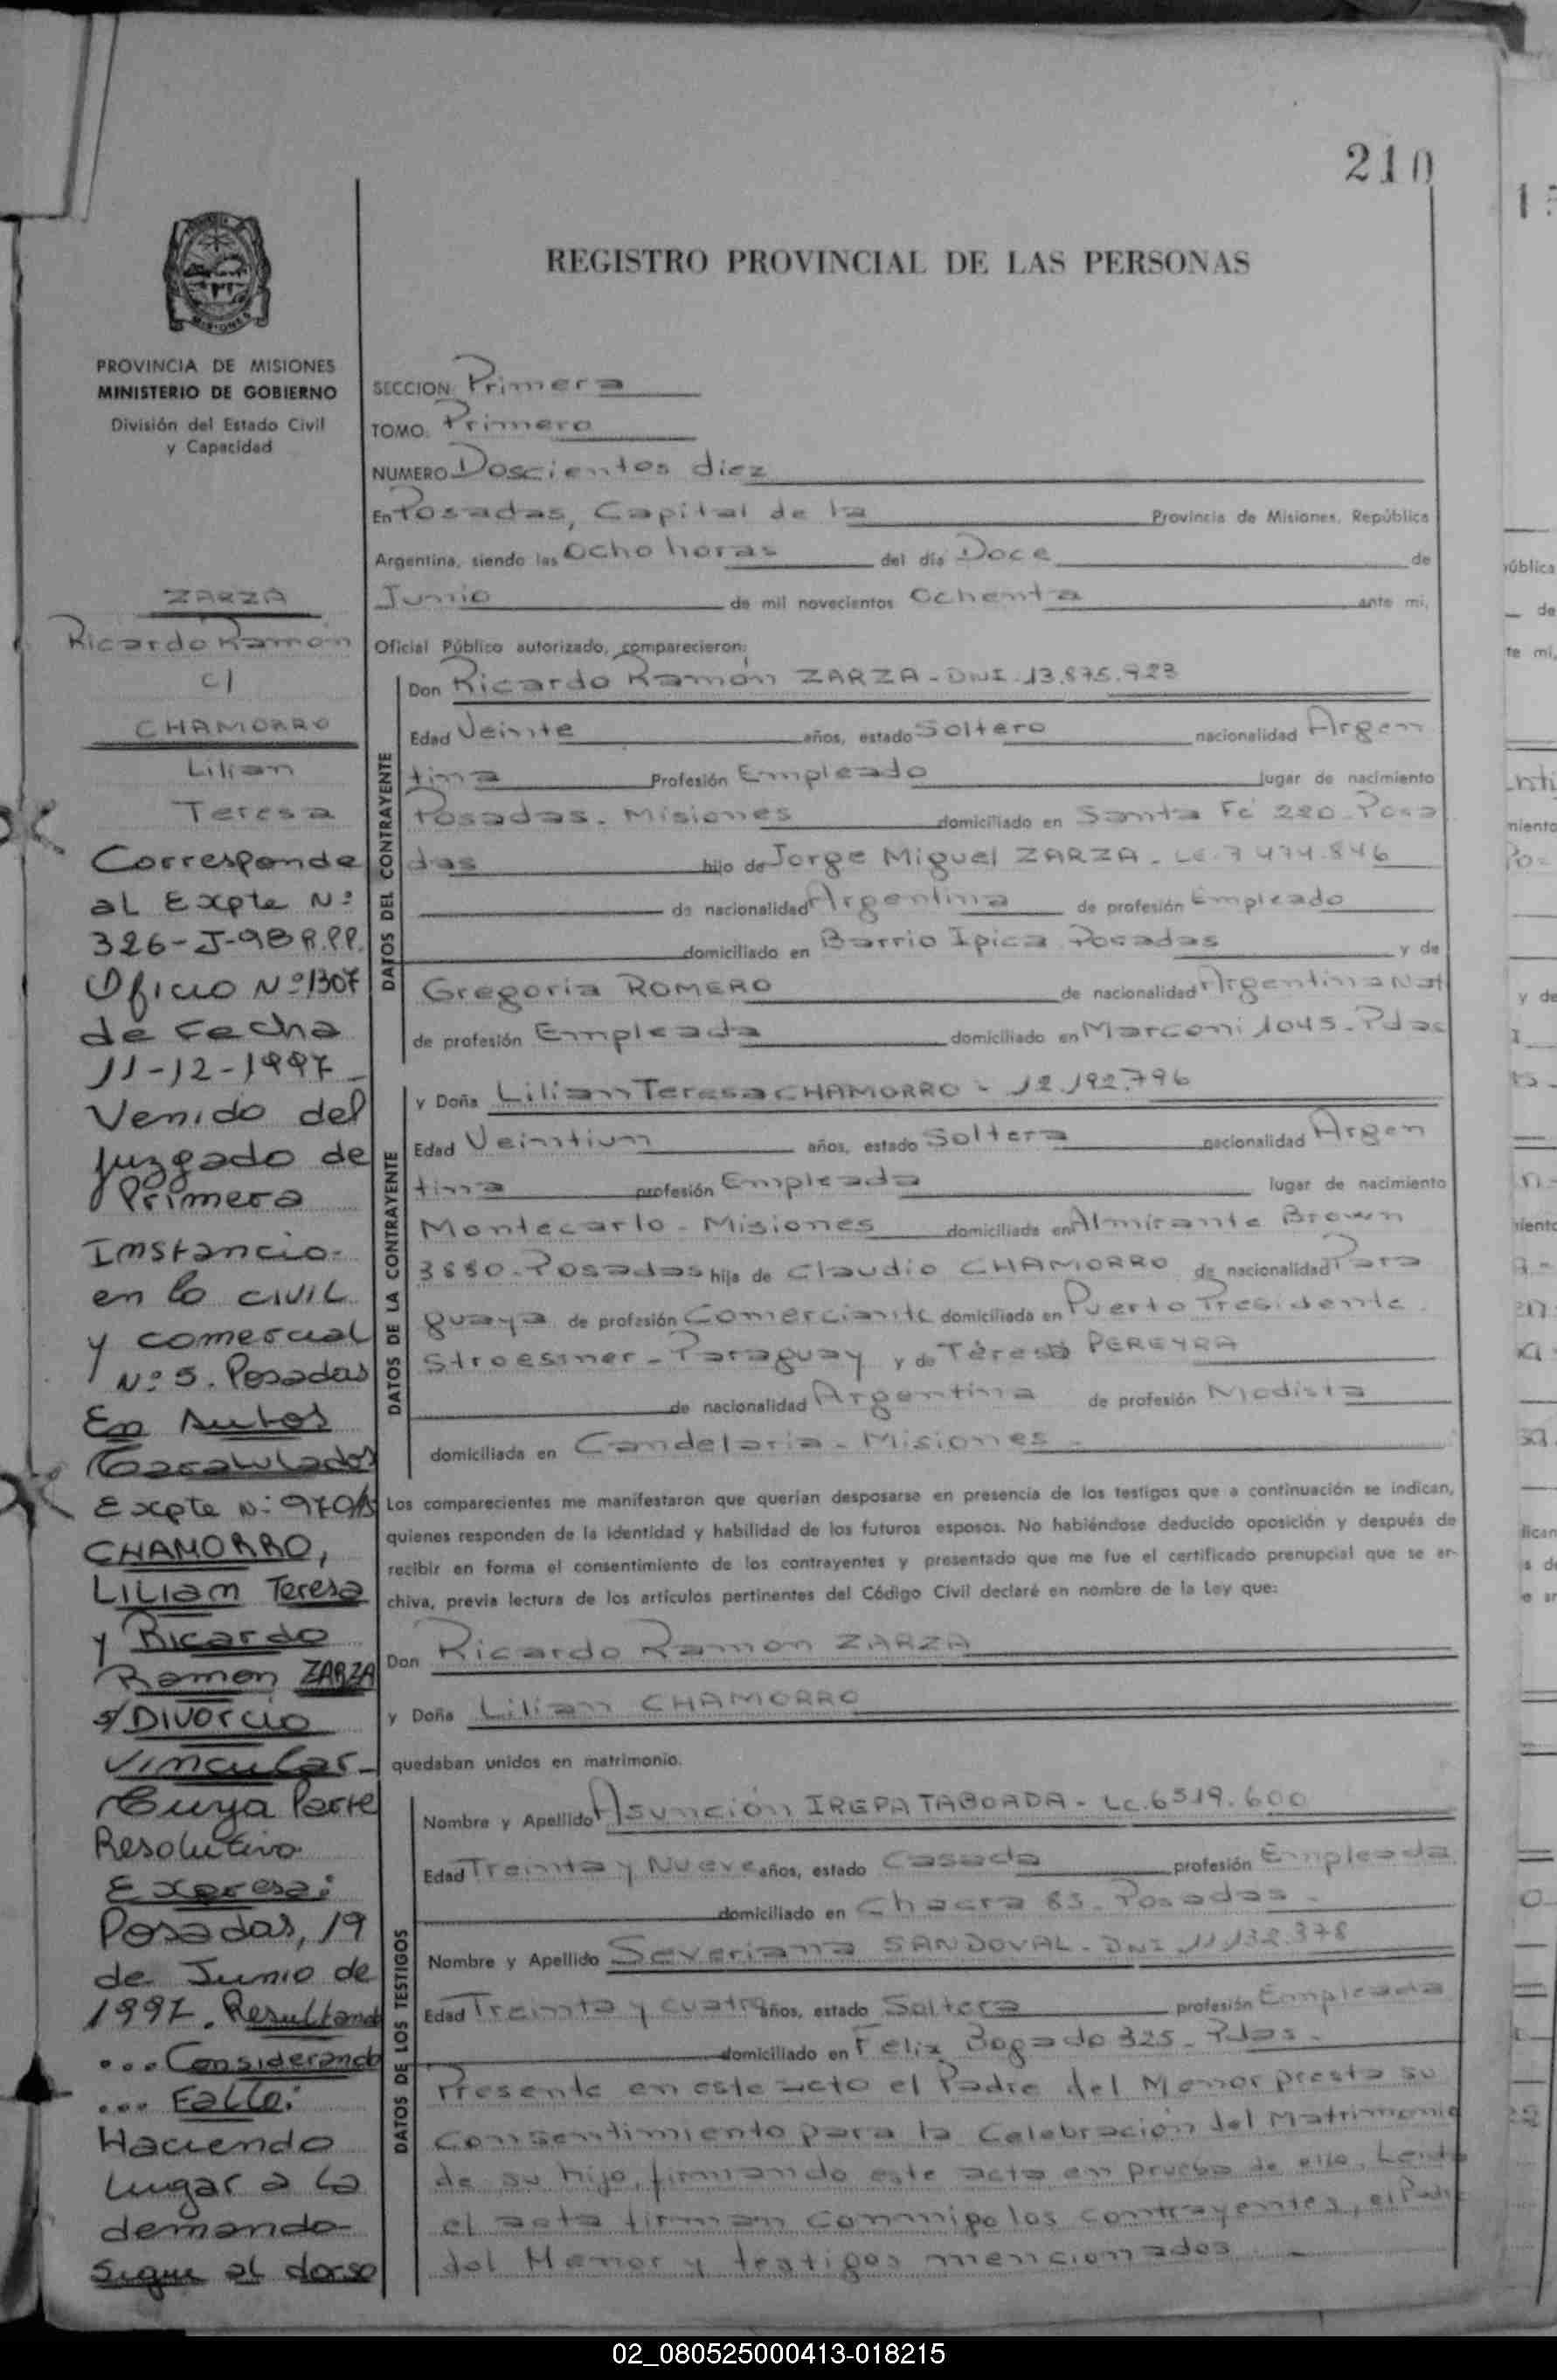 210
REGISTRO PROVINCIAL DE LAS PERSONAS
MISIONES
PROVINCIA DE MISIONES
MINISTERIO DE GOBIERNO
División del Estado Civil
y Capacidad
ZARZA
Ricardo Ramón
c/
CHAMORRO
Lilian
Teresa
Corresponde
al Expte Nº
326-J-98 R.P.P.
Oficio Nº 1307
de Fecha
11-12-1997
Venido del
Juzgado de
Primera
Instancia
en lo civil
y comercial
Nº 5. Posadas
En Autos
Caratulados
Expte Nº
CHAMORRO,
LILIAM Teresa
y Ricardo
Ramon ZARZA
s/ DIVORCIO
VINCULAR-
Cuya Parte
Resolutiva
Expresa:
Posadas, 19
de Junio de
1997. Resultando
... Considerando
... Fallo:
Haciendo
Lugar a la
demanda
Sigue al dorso
SECCION Primera
TOMO Primero
NUMERO Doscientos diez
En Posadas, Capital de la Provincia de Misiones, República
Argentina, siendo las Ocho horas del día Doce de
Junio de mil novecientos Ochenta ante mi,
Oficial Público autorizado, comparecieron:
DATOS DEL CONTRAYENTE
Don Ricardo Ramón ZARZA - DNI. 13.875.923
Edad Veinte años, estado Soltero nacionalidad Argen
tina Profesión Empleado lugar de nacimiento
Posadas - Misiones domiciliado en Santa Fé 220 - Posa
das hijo de Jorge Miguel ZARZA - LE. 7.474.846
de nacionalidad Argentina de profesión Empleado
domiciliado en Barrio Ipica Posadas y de
Gregoria ROMERO de nacionalidad Argentina Nat
de profesión Empleada domiciliado en Marconi 1045 - Pdas
DATOS DE LA CONTRAYENTE
y Doña Lilian Teresa CHAMORRO - 12.192.796
Edad Veintiun años, estado Soltera nacionalidad Argen
tina profesión Empleada lugar de nacimiento
Montecarlo - Misiones domiciliada en Almirante Brown
3880 - Posadas hija de Claudio CHAMORRO de nacionalidad Para
guaya de profesión Comerciante domiciliada en Puerto Presidente
Stroesner - Paraguay y de Teresa PEREYRA
de nacionalidad Argentina de profesión Modista
domiciliada en Candelaria - Misiones -
Los comparecientes me manifestaron que querían desposarse en presencia de los testigos que a continuación se indican,
quienes responden de la identidad y habilidad de los futuros esposos. No habiéndose deducido oposición y después de
recibir en forma el consentimiento de los contrayentes y presentado que me fue el certificado prenupcial que se ar-
chiva, previa lectura de los artículos pertinentes del Código Civil declaré en nombre de la Ley que:
Don Ricardo Ramon ZARZA
y Doña Lilian CHAMORRO
quedaban unidos en matrimonio.
DATOS DE LOS TESTIGOS
Nombre y Apellido Asunción IREPA TABOADA - LC. 6519.600
Edad Treinta y Nueve años, estado Casada profesión Empleada
domiciliado en Chacra 83 - Posadas -
Nombre y Apellido Severiana SANDOVAL - DNI 11.132.378
Edad Treinta y cuatro años, estado Soltera profesión Empleada
domiciliado en Felix Bogado 325 - Pdas -
Presente en este acto el Padre del Menor presta su
consentimiento para la Celebración del Matrimonio
de su hijo, firmando este acta en prueba de ello. Leida
el acta firman conmigo los contrayentes, el Padre
del Menor y testigos mencionados -
02_080525000413-018215